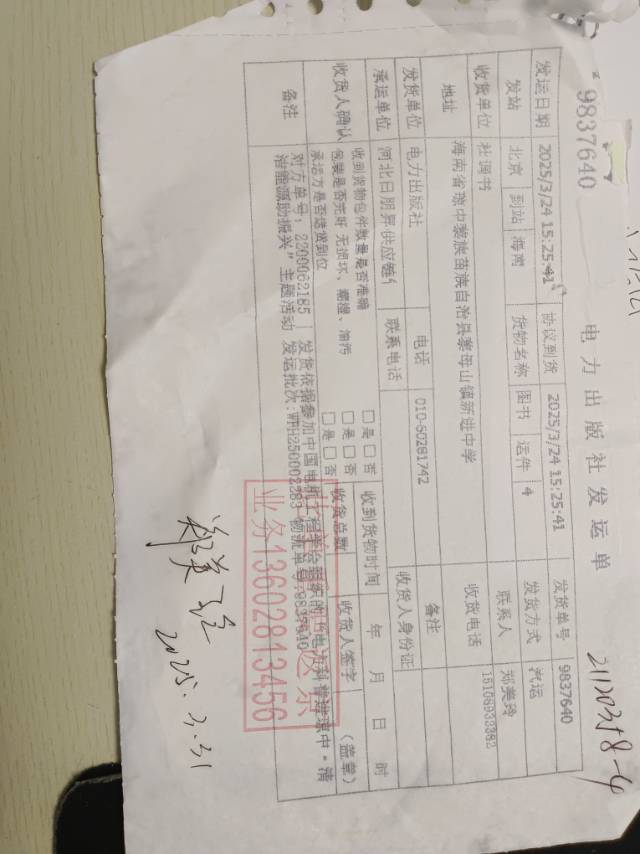 9837640
电力出版社发运单
21120358-4
发运日期 2025/3/24 15:25:41 协议到货 2025/3/24 15:25:41 发货单号 9837640
发站 北京 到站 海南 货物名称 图书 运件 4 发货方式 汽运
收货单位 社调书 联系人 郑美玲
地址 海南省琼中黎族苗族自治县黎母山镇新进中学 收货电话 15108933382
发货单位 电力出版社 电话 010-60281742 备注
承运单位 河北日朋昇供应链 联系电话 收货人身份证
收货人确认 收到货物包件数量是否准确 □是 □否 收到货物时间 年 月 日 时
包装是否完听 无损坏、潮撞、油污 □是 □否 收货总数 收货人签字 (盖章)
承运方是否送货到位 □是 □否
备注 对方单号:2200062185 | 发货依据参加中国电机工程学会组织的"电力科普进琼中·清
洁能源助振兴"主题活动 发运批次:WFH250002283 物流单号:9837640
业务13602813456
郑美玲
2025.3.31